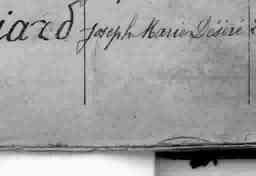 iard Joseph Marie Désiré